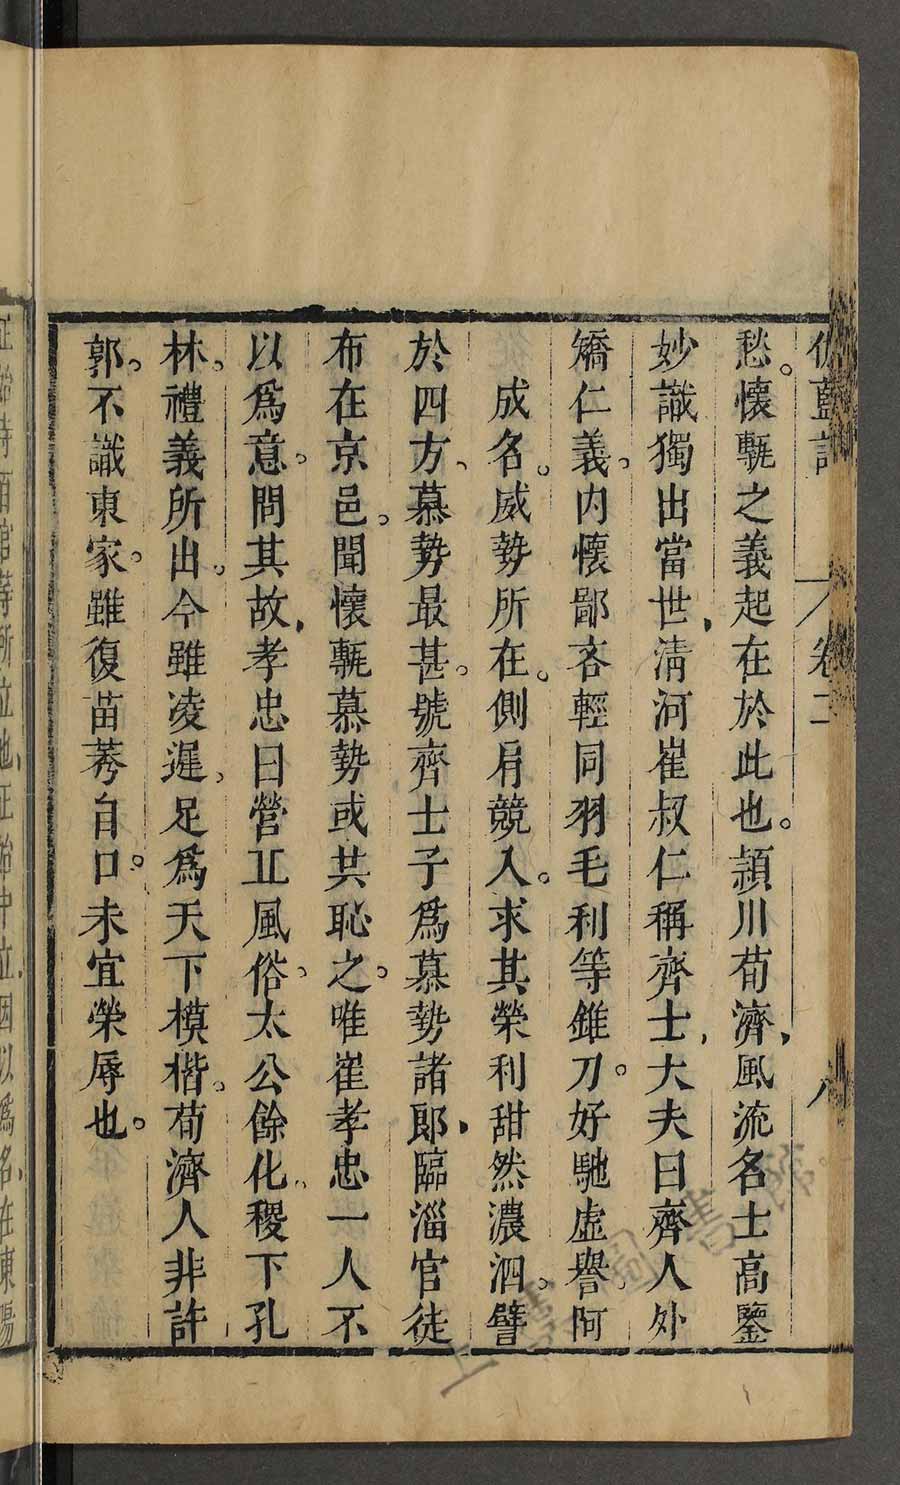 伽藍記 卷二 八
愁。懷甎之義起在於此也。頴川荀濟，風流名士高鑒
妙識獨出當世，清河崔叔仁稱齊士，大夫曰齊人外
矯仁義。内懷鄙吝輕同羽毛利等錐刀。好馳虛譽。阿
成名。威勢所在。側肩競入。求其榮利甜然濃泗。譬
於四方、慕勢最甚。號齊士子爲慕勢諸郎，臨淄官徒
布在京邑。聞懷甎慕勢或共恥之。唯崔孝忠一人不
以爲意。問其故，孝忠曰營丘風俗。太公餘化、稷下孔
林。禮義所出。今雖凌遲、足爲天下模楷。荀濟人非許
郭。不識東家。雖復苗莠自口。未宜榮辱也。